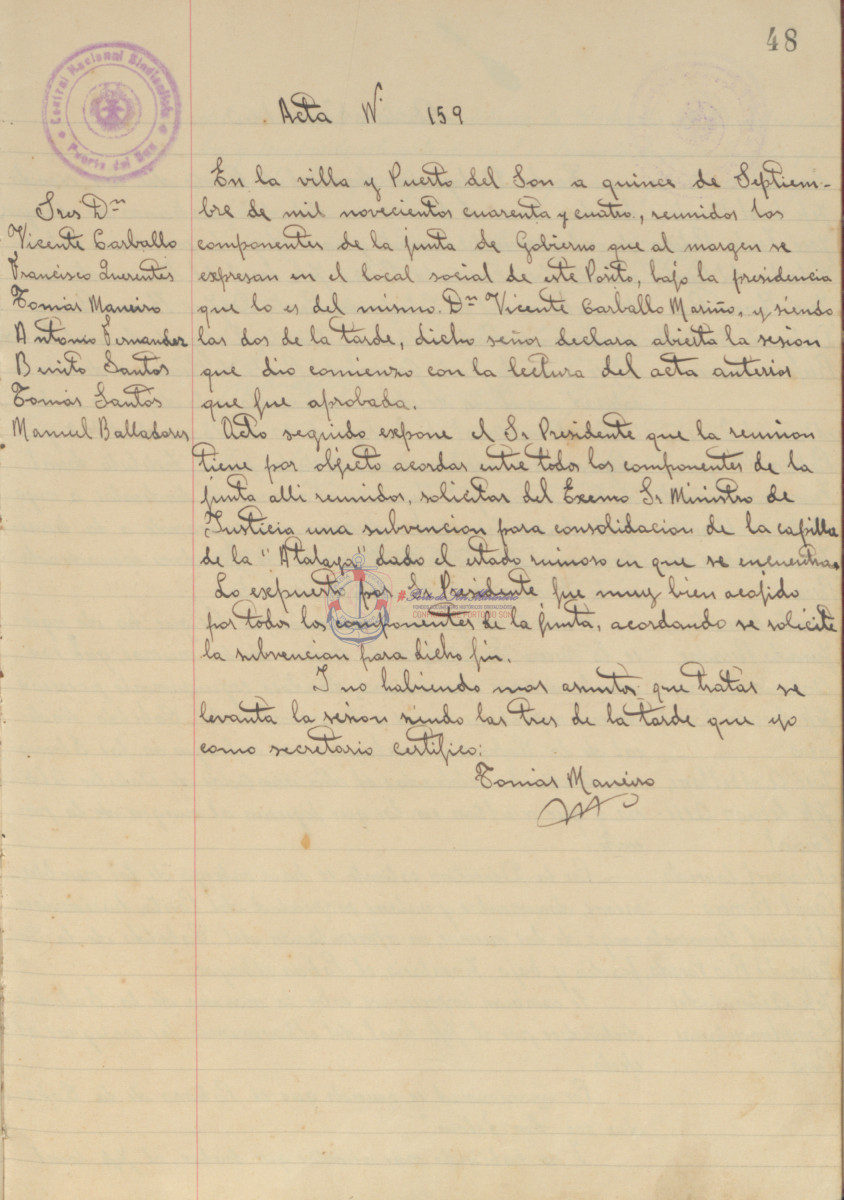 48
Central Nacional Sindicalista
Puerto del Son
Acta N. 159
Sres Dn
Vicente Carballo
Francisco Querentes
Tomás Maneiro
Antonio Fernandez
Benito Santos
Tomás Santos
Manuel Balladores
En la villa y Puerto del Son a quince de Septiem-
bre de mil novecientos cuarenta y cuatro, reunidos los
componentes de la junta de Gobierno que al margen se
expresan en el local social de este Pósito, bajo la presidencia
que lo es del mismo Dn Vicente Carballo Mariño, y siendo
las dos de la tarde, dicho señor declara abierta la sesion
que dio comienzo con la lectura del acta anterior
que fue aprobada.
Acto seguido expone el Sr Presidente que la reunion
tiene por objecto acordar entre todos los componentes de la
junta alli reunidos, solicitar del Exemo Sr Ministro de
Justicia una subvencion para consolidacion de la capilla
de la "Atalaya" dado el estado ruinoso en que se encuentra.
Lo expuesto por Sr Presidente fue muy bien acojido
por todos los componentes de la junta, acordando se solicite
la subvencion para dicho fin.
I no habiendo mas asuntos que tratar se
levanta la sesion siendo las tres de la tarde que yo
como secretario certifico:
Tomás Maneiro